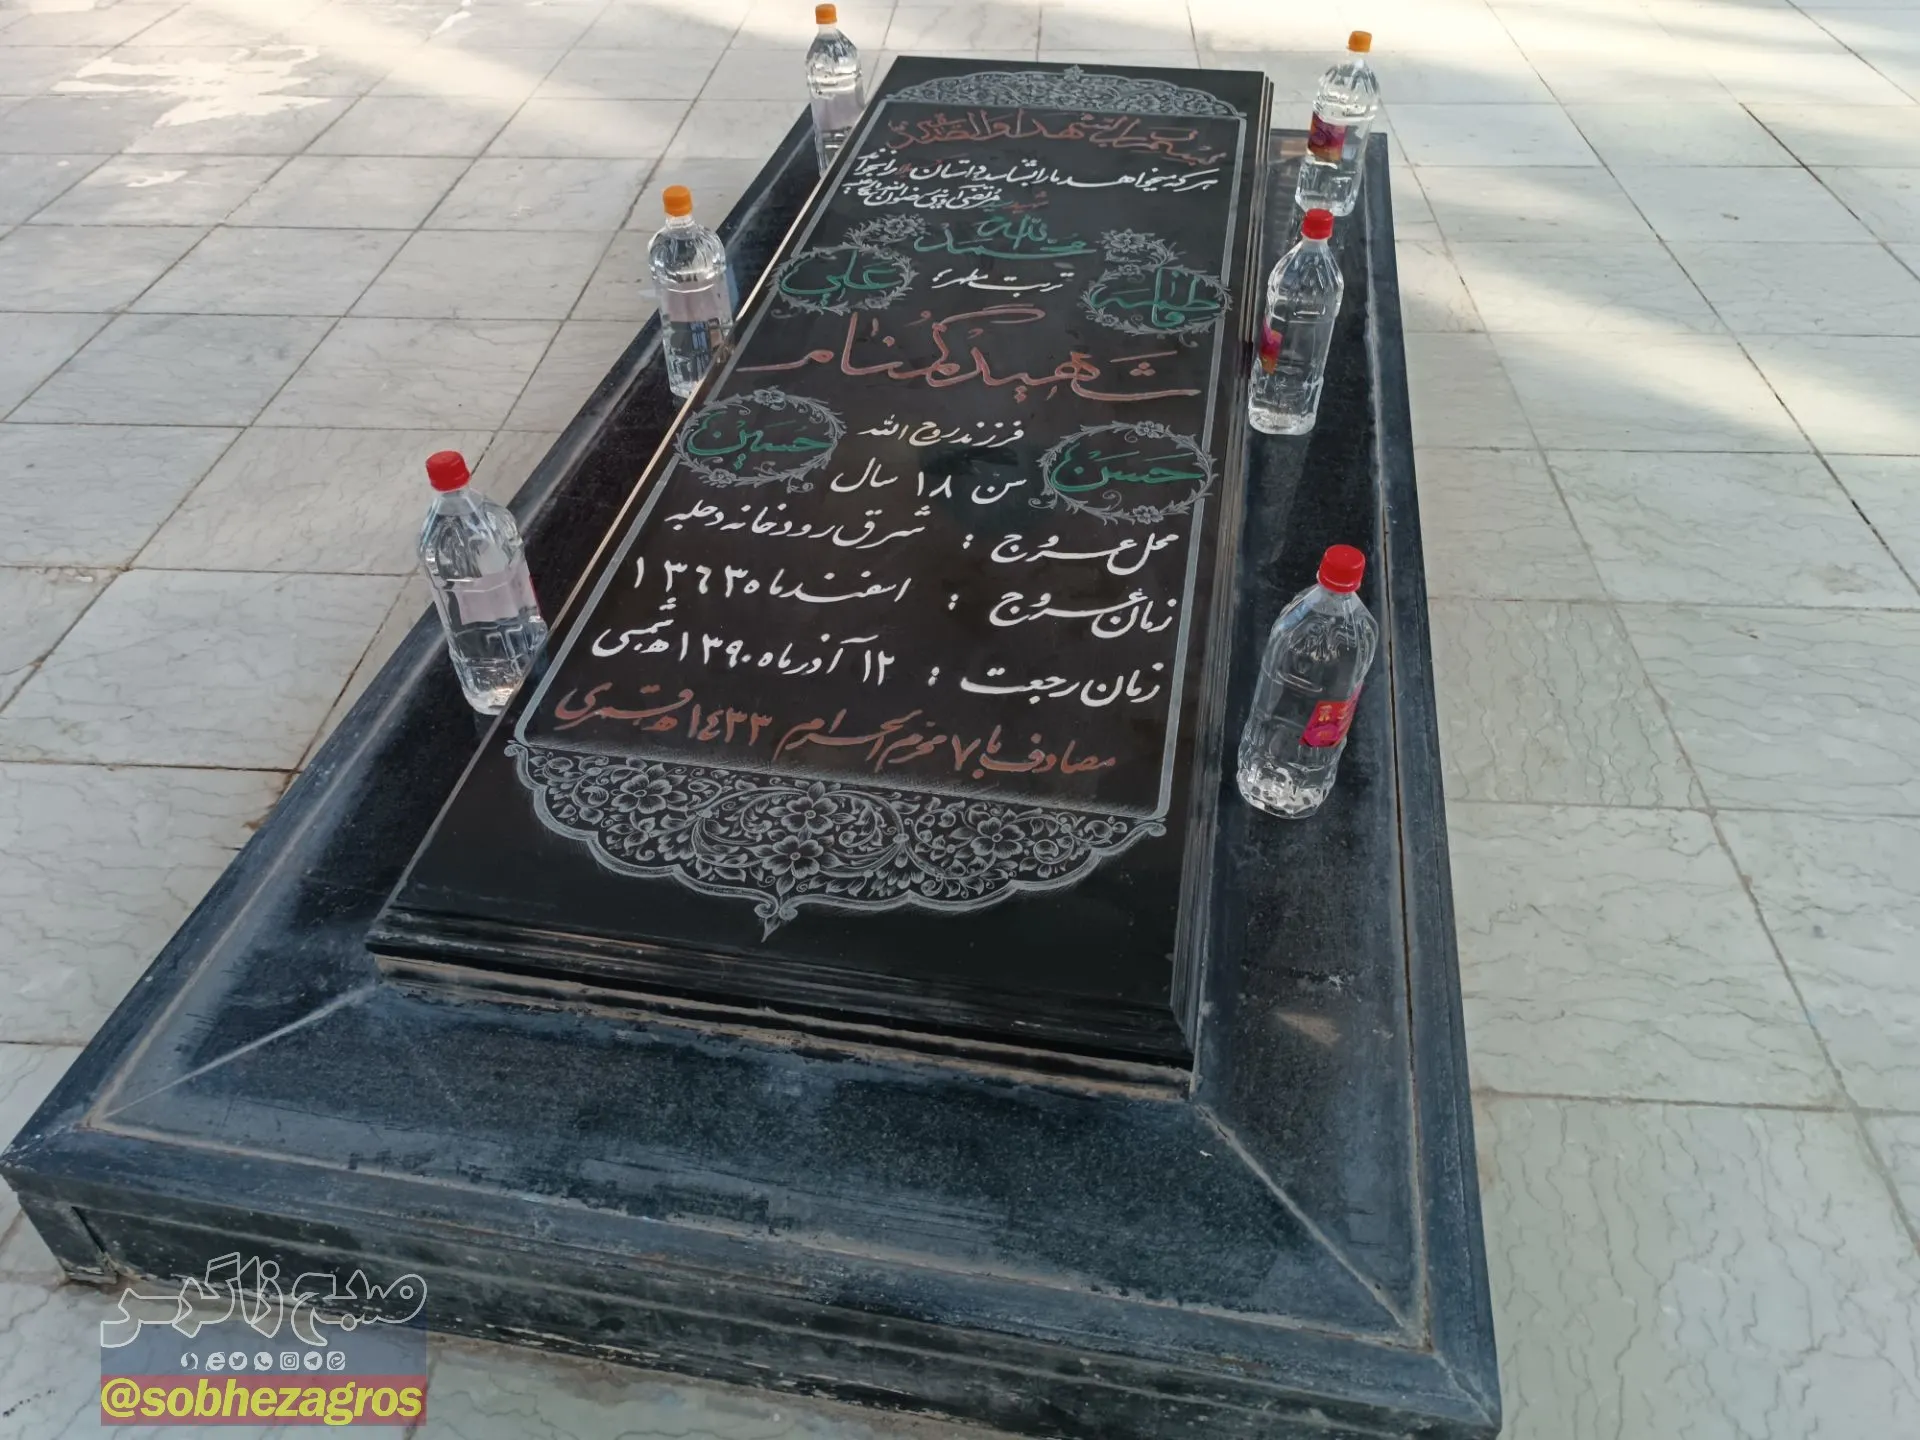 بسم رب الشهداء والصدیقین
هر که میخواهد ما را بشناسد داستان کربلا را بخواند
شهید سید مرتضی آوینی رضوان الله علیه
یا الله
محمد
علی
تربت مطهر
فاطمه
شهید گمنام
فرزند روح الله
حسین
حسن
سن ۱۸ سال
محل عروج : شرق رودخانه دجله
زمان عروج : اسفند ماه ۱۳۶۳
زمان رجعت : ۱۲ آذر ماه ۱۳۹۰ ه شمسی
مصادف با ۷ محرم الحرام ۱۴۳۳ ه قمری
صبح زاگرس
@sobhezagros